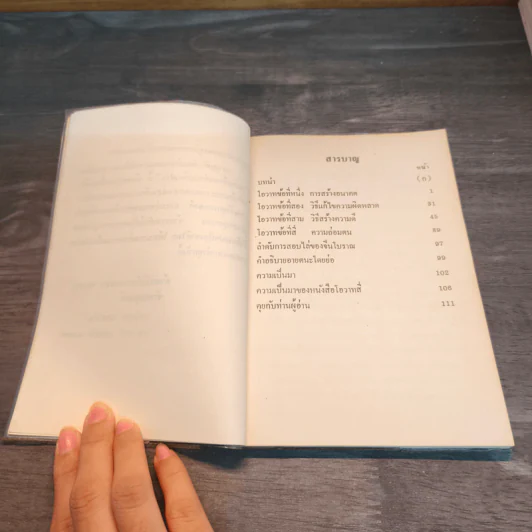 สารบาญ
หน้า
บทนำ (ก)
โอวาทข้อที่หนึ่ง การสร้างอนาคต 1
โอวาทข้อที่สอง วิธีแก้ไขความผิดพลาด 21
โอวาทข้อที่สาม วิธีสร้างความดี 45
โอวาทข้อที่สี่ ความถ่อมตน 89
ลำดับการสอบไล่ของจีนโบราณ 97
คำอธิบายอายตนะโดยย่อ 99
ความเป็นมา 102
ความเป็นมาของหนังสือโอวาทสี่ 108
คุยกับท่านผู้อ่าน 111